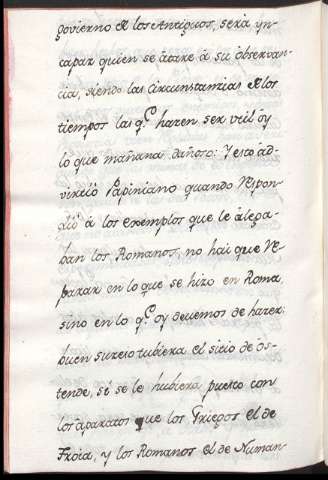 govierno de los Antiguos, será yn-
capaz quien se átare á su observan-
cia, siendo las circunstancias de los
tiempos las q.e hazen ser util oy
lo que mañana dañoso: Y esto ád-
virtió Papiniano quando respon-
dió á los exemplos que le alega-
ban los Romanos, no hai que re-
parar en lo que se hizo en Roma,
sino en lo q.e oy devemos de hazer:
buen suceso tubiera el sitio de Os-
tende, si se le hubiera puesto con
los áparatos que los Griegos el de
Troia, y los Romanos el de Numan